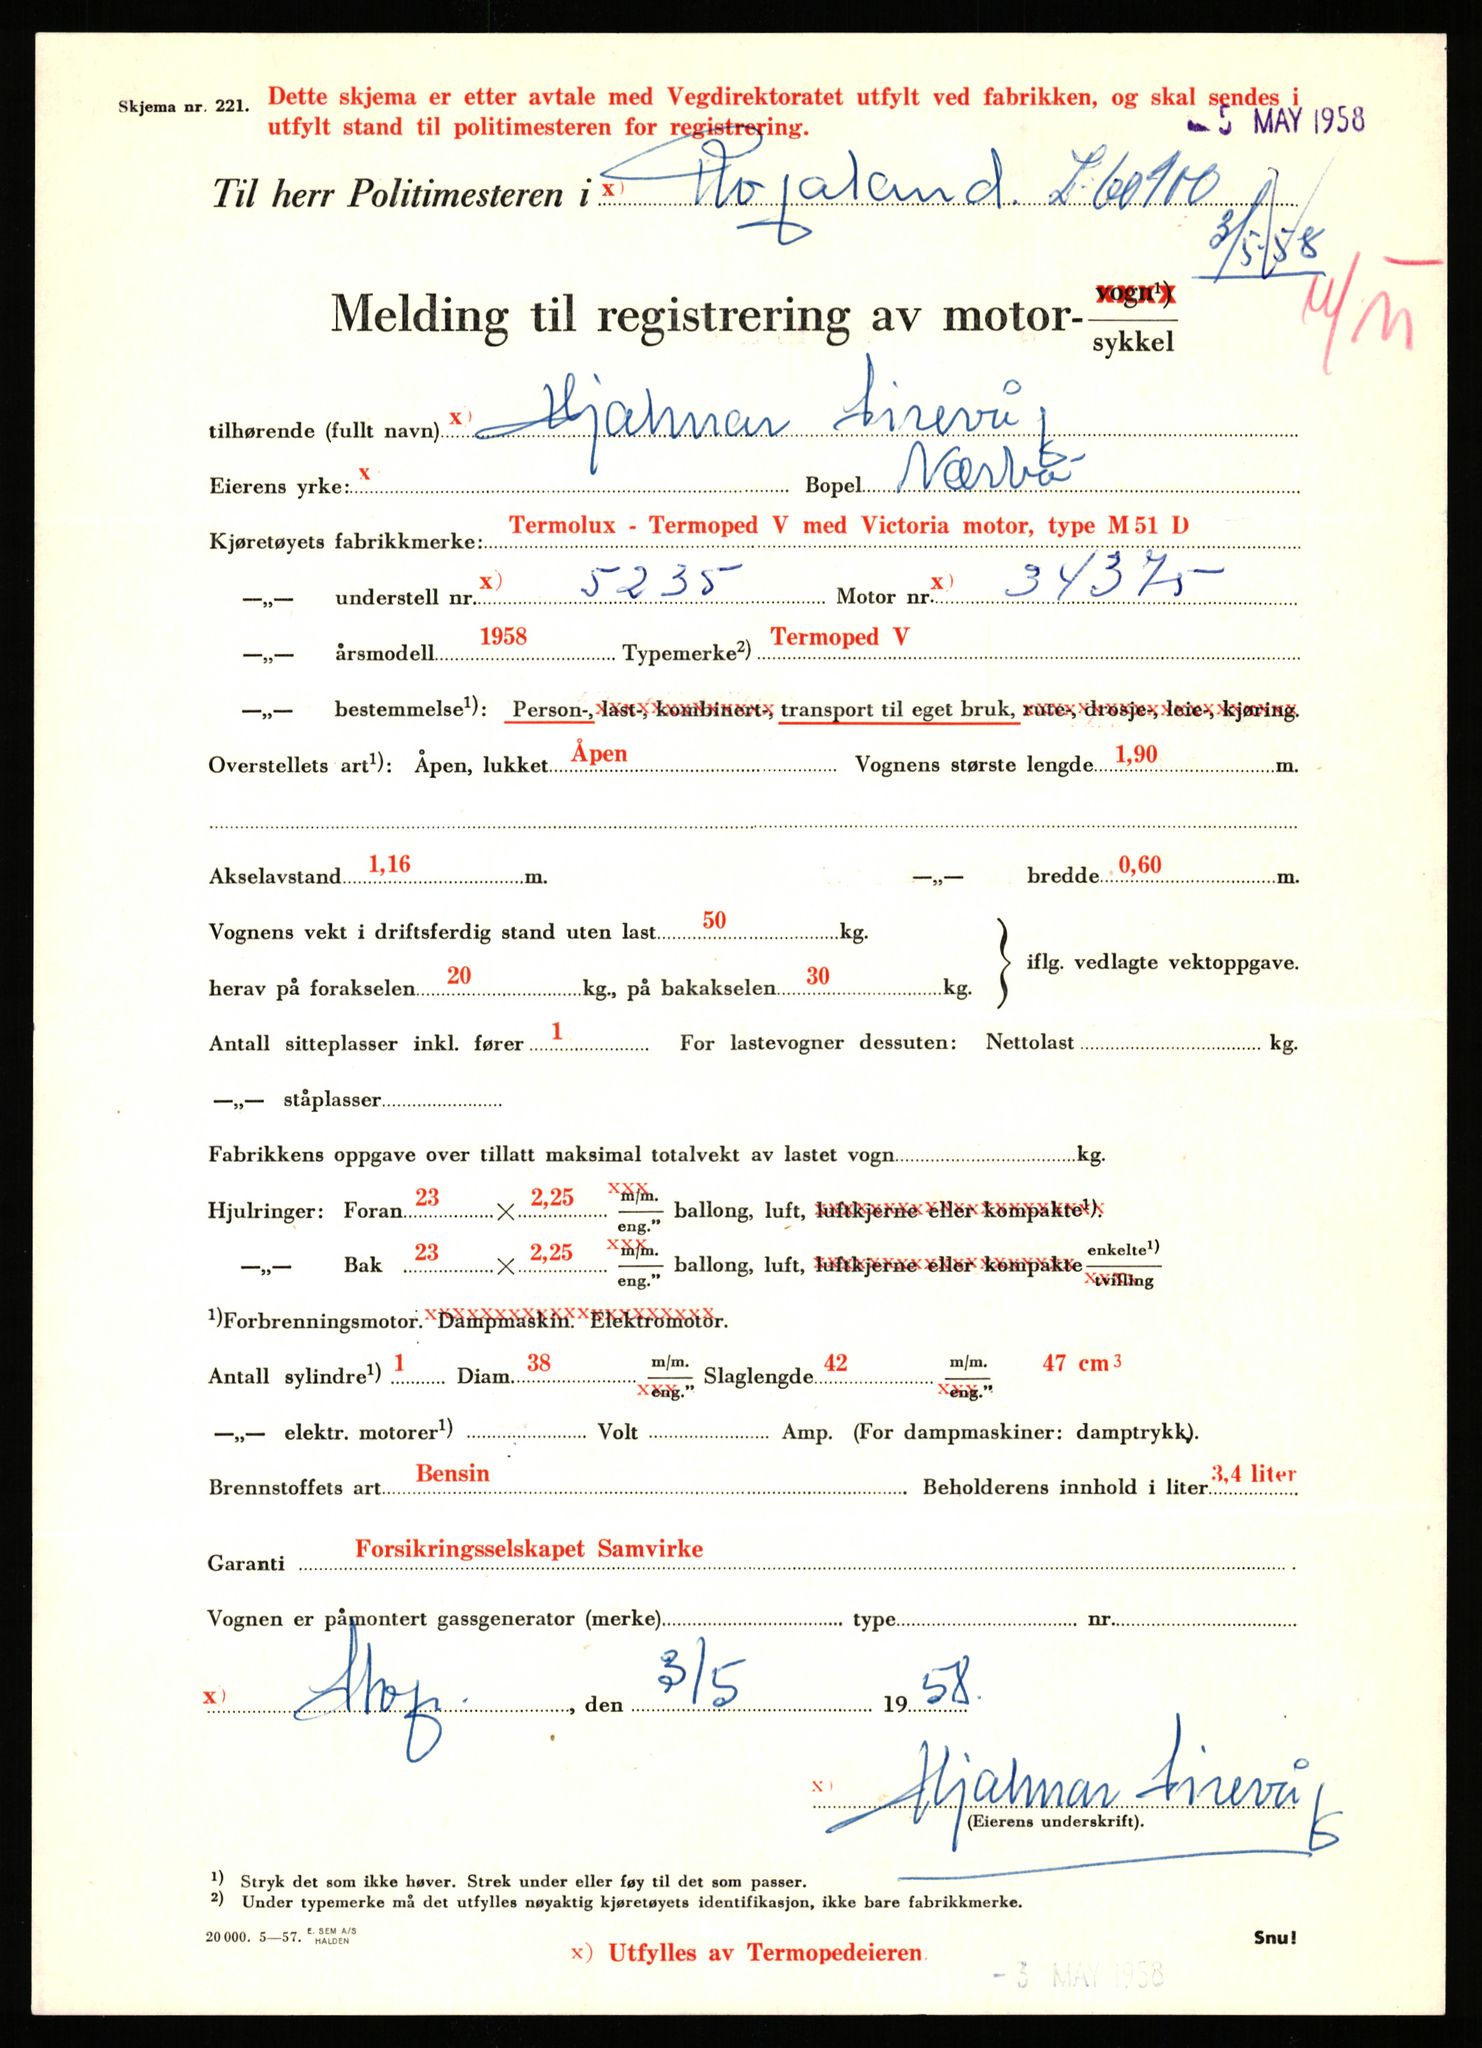 Skjema nr. 221. Dette skjema er etter avtale med Vegdirektoratet utfylt ved fabrikken, og skal sendes i
utfylt stand til politimesteren for registrering.
- 5 MAY 1958
Til herr Politimesteren i x) Rogaland. L-60900
3/5-58
Melding til registrering av motor- vogn¹)
sykkel
tilhørende (fullt navn) x) Hjalmar Sirevåg
Eierens yrke: x Bopel Nærbø
Kjøretøyets fabrikkmerke: Termolux - Termoped V med Victoria motor, type M 51 D
—„— understell nr. x) 5235 Motor nr. x) 34375
—„— årsmodell 1958 Typemerke²) Termoped V
—„— bestemmelse¹): Person-, last-, kombinert-, transport til eget bruk, rute-, drosje-, leie-, kjøring.
Overstellets art¹): Åpen, lukket Åpen Vognens største lengde 1,90 m.
Akselavstand 1,16 m. —„— bredde 0,60 m.
Vognens vekt i driftsferdig stand uten last 50 kg.
iflg. vedlagte vektoppgave.
herav på forakselen 20 kg., på bakakselen 30 kg.
Antall sitteplasser inkl. fører 1 For lastevogner dessuten: Nettolast kg.
—„— ståplasser
Fabrikkens oppgave over tillatt maksimal totalvekt av lastet vogn kg.
Hjulringer: Foran 23 × 2,25 m/m. eng.” ballong, luft, luftkjerne eller kompakte¹).
—„— Bak 23 × 2,25 m/m. eng.” ballong, luft, luftkjerne eller kompakte enkelte¹) tvilling
¹)Forbrenningsmotor. Dampmaskin. Elektromotor.
Antall sylindre¹) 1 Diam. 38 m/m. eng.” Slaglengde 42 m/m. eng.” 47 cm³
—„— elektr. motorer¹) Volt Amp. (For dampmaskiner: damptrykk).
Brennstoffets art Bensin Beholderens innhold i liter 3,4 liter
Garanti Forsikringsselskapet Samvirke
Vognen er påmontert gassgenerator (merke) type nr.
x) , den 3/5 19 58.
x) Hjalmar Sirevåg
(Eierens underskrift).
¹) Stryk det som ikke høver. Strek under eller føy til det som passer.
²) Under typemerke må det utfylles nøyaktig kjøretøyets identifikasjon, ikke bare fabrikkmerke.
20 000. 5—57. E. SEM A/S HALDEN
Snu!
x) Utfylles av Termopedeieren
- 3 MAY 1958